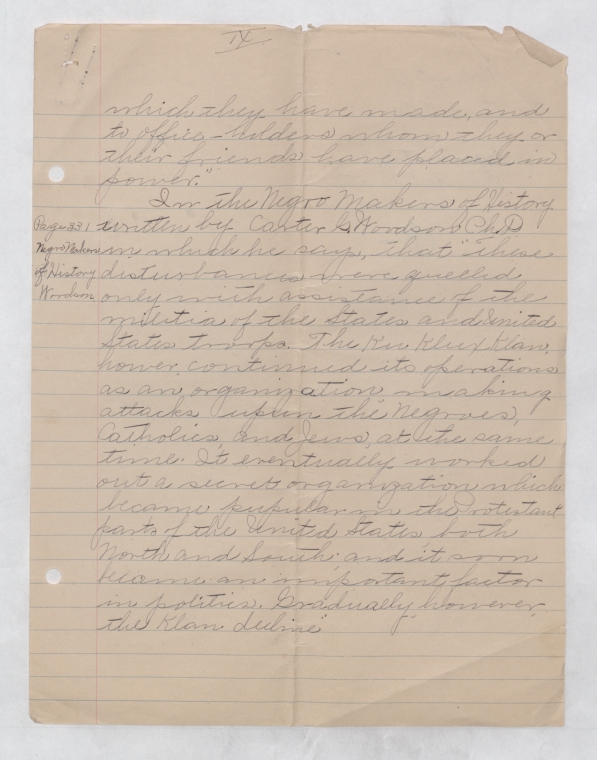 IX
which they have made, and
to office-holders whom they or
their friends have placed in
power."
In the Negro Makers of History
written by Carter G Woodson Ph.D
in which he says, that "these
disturbances were quelled
only with assistance of the
militia of the States and United
States troops. The Ku Klux Klan,
hower, continued its operations
as an organization making
attacks upon the Negroes,
Catholics, and Jews, at the same
time. It eventually worked
out a secret organization which
became popular in the Protestant
parts of the United States both
North and South and it soon
became an important factor
in politics. Gradually, however,
the Klan decline"
Page 331
Negro Makers
of History
Woodson